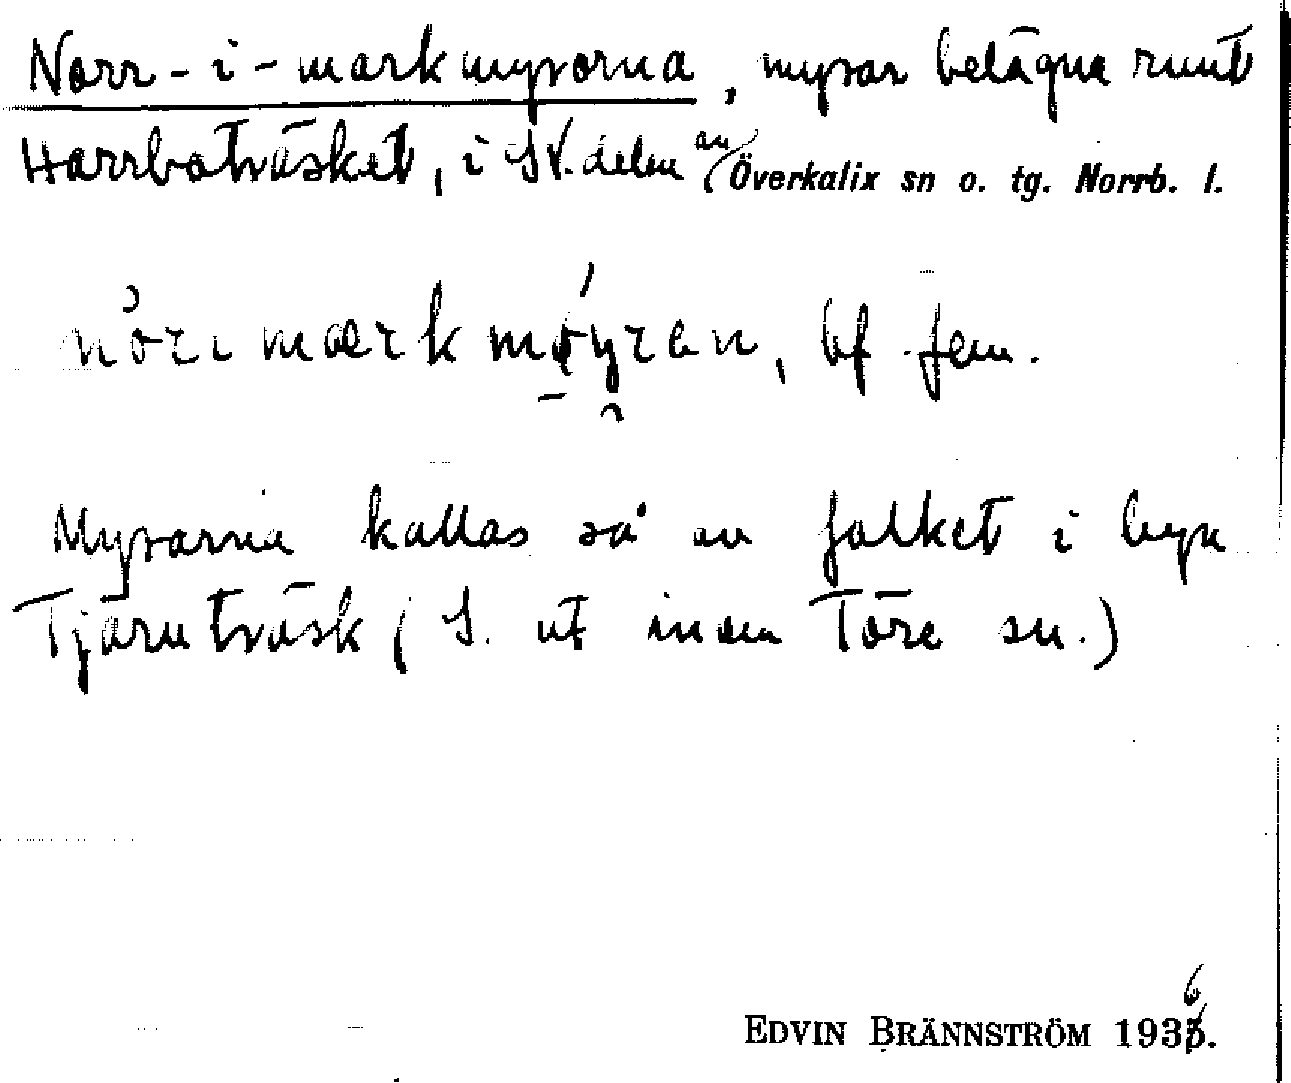 Norr-i-markmyrorna, myrar belägna runt
Harrboträsket, i SV. delen av Överkalix sn o. tg. Norrb. l.
nòri mærk møyran, bf fem.
Myrarna kallas så av folket i byn
Tjäruträsk (S. ut inom Töre sn.)
EDVIN BRÄNNSTRÖM 1936.